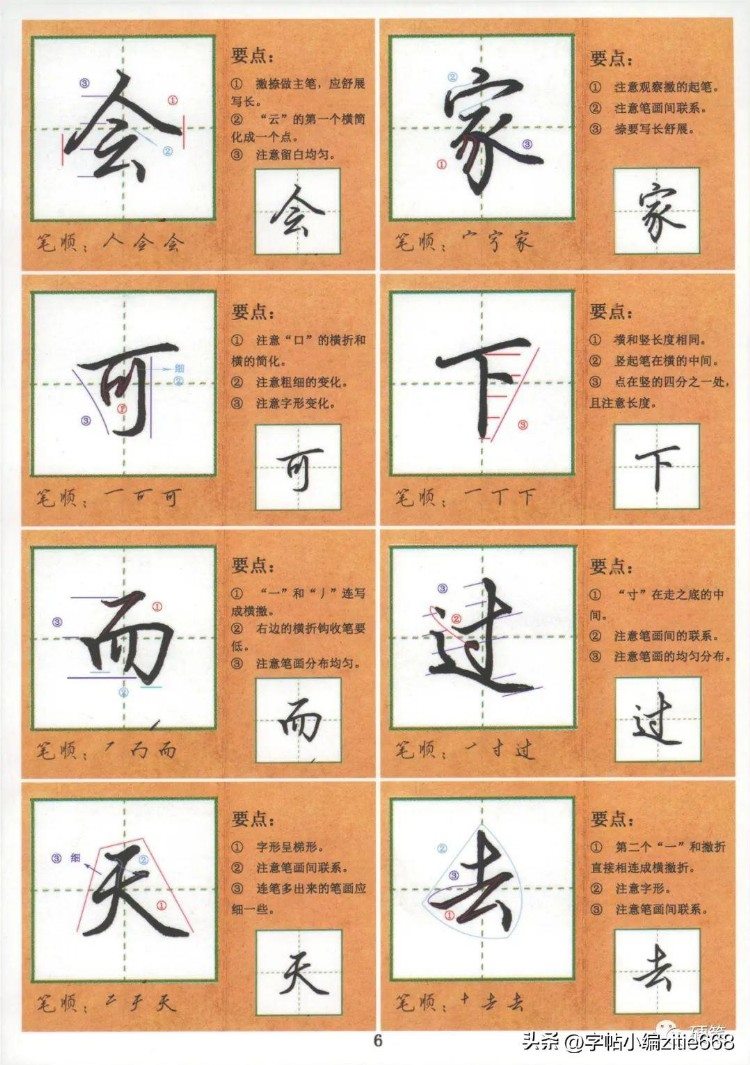 会
要点：
① 撇捺做主笔，应舒展
写长。
② “云”的第一个横简
化成一个点。
③ 注意留白均匀。
③
①
②
会
笔顺：人 会 会
家
要点：
① 注意观察撇的起笔。
② 注意笔画间联系。
③ 捺要写长舒展。
②
③
①
家
笔顺：宀 家
可
要点：
① 注意“口”的横折和
横的简化。
② 注意粗细的变化。
③ 注意字形变化。
细
②
①
③
可
笔顺：一 可
下
要点：
① 横和竖长度相同。
② 竖起笔在横的中间。
③ 点在竖的四分之一处，
且注意长度。
③
下
笔顺：一 丅 下
而
要点：
① “一”和“丿”连写
成横撇。
② 右边的横折钩收笔要
低。
③ 注意笔画分布均匀。
①
③
②
而
笔顺：而
过
要点：
① “寸”在走之底的中
间。
② 注意笔画间的联系。
③ 注意笔画的均匀分布。
③
②
①
过
笔顺：一 寸 过
天
要点：
① 字形呈梯形。
② 注意笔画间联系。
③ 连笔多出来的笔画应
细一些。
③ 细
②
①
天
笔顺：二 于 天
去
要点：
① 第二个“一”和撇折
直接相连成横撇折。
② 注意字形。
③ 注意笔画间联系。
②
③
①
去
笔顺：十 去 去
6
头条 @字帖小编zitie668